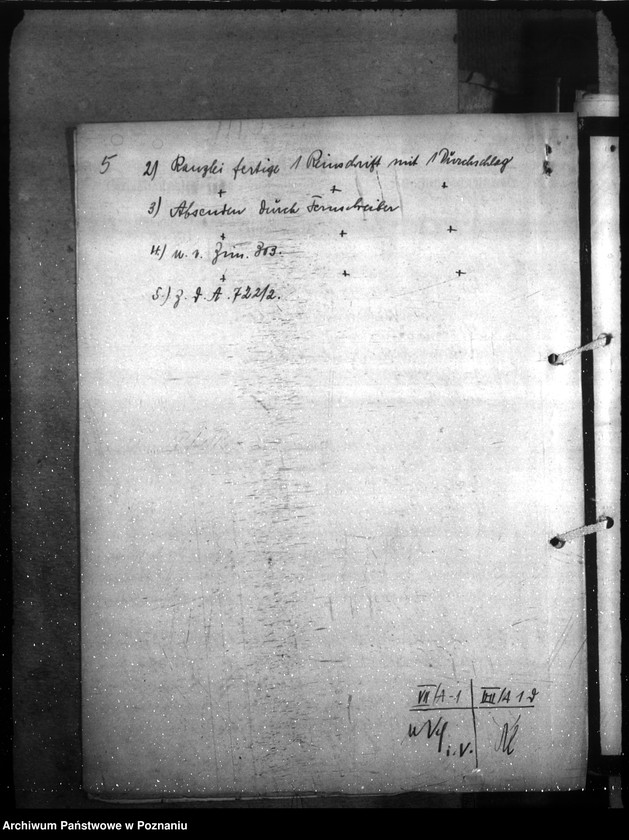 5 2) Kanzlei fertige 1 Reinschrift mit 1 Durchschlag
3) Absenden durch Fernschreiber
4.) u. v. Zim. 303.
5.) Z. d. A. 722/2.
VII/A-1 III/A 1 d
i.V.
Archiwum Państwowe w Poznaniu